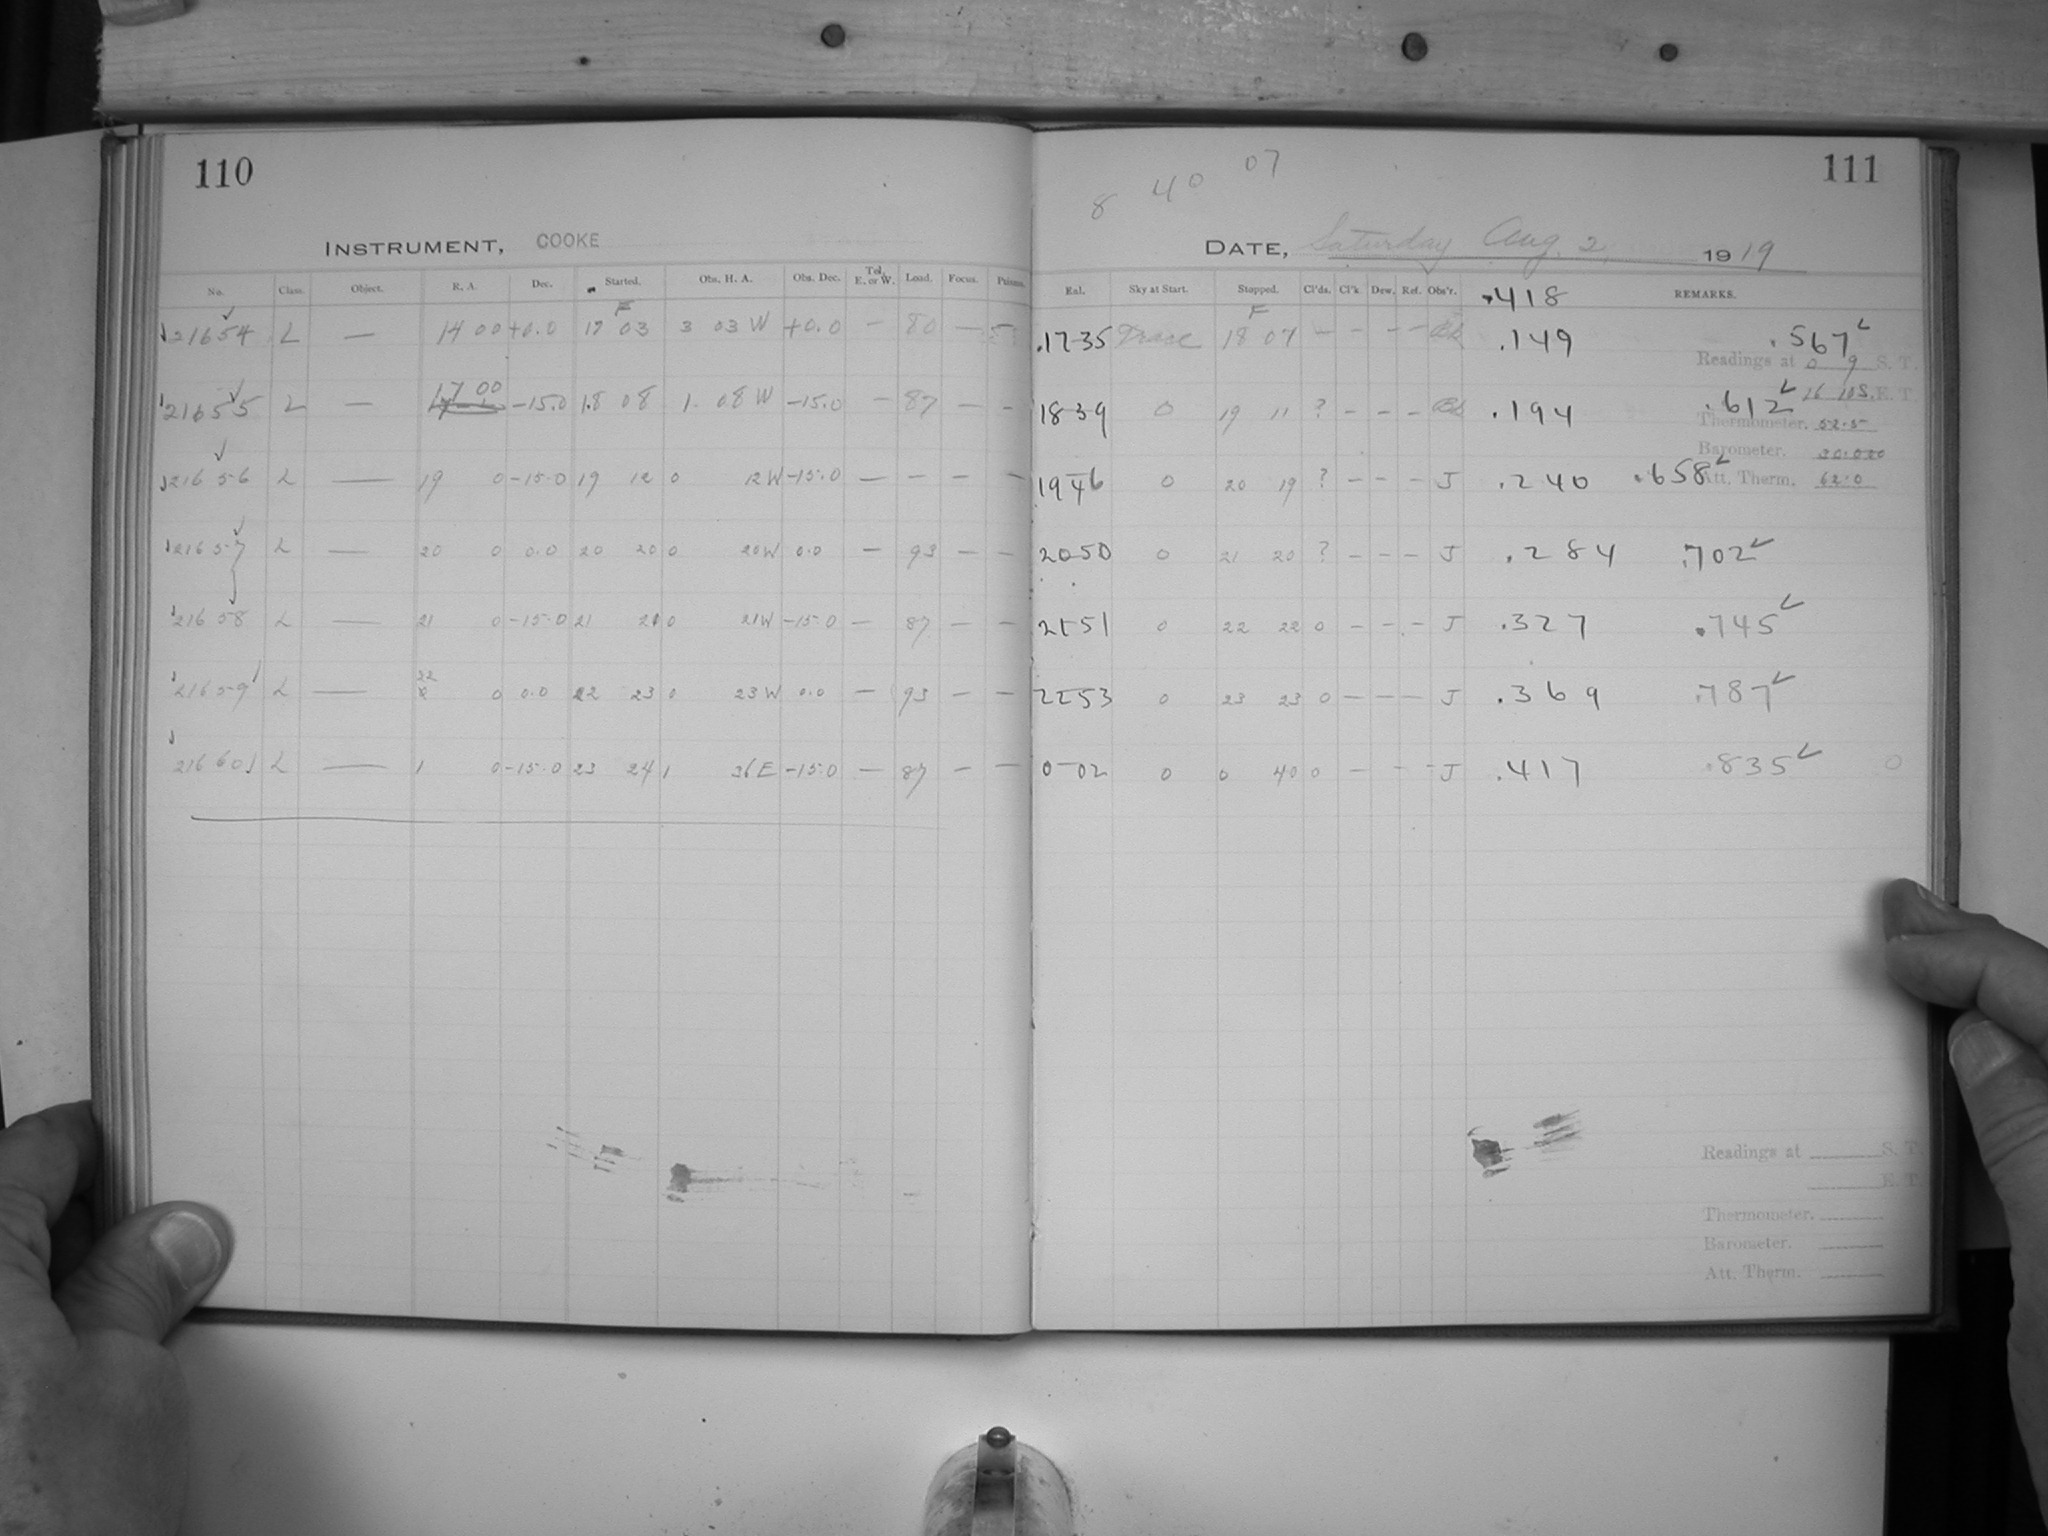 110
INSTRUMENT, COOKE
No. Class. Object. R. A. Dec. Started. Obs. H. A. Obs. Dec. Tel. E. or W. Load. Focus. Prisms.
F
21654 L — 14 00 +0.0 17 03 3 03 W +0.0 — 80 —
21655 L — 17 00 -15.0 18 08 1 08 W -15.0 — 87 — —
21656 L — 19 0 -15.0 19 12 0 12 W -15.0 — — — —
21657 L — 20 0 0.0 20 20 0 20 W 0.0 — 93 — —
21658 L — 21 0 -15.0 21 21 0 21 W -15.0 — 87 — —
21659 L — 22 0 0.0 22 23 0 23 W 0.0 — 93 — —
21660 L — 1 0 -15.0 23 24 1 36 E -15.0 — 87 — —
111
8 40 07
DATE, Saturday Aug. 2, 1919
Eal. Sky at Start. Stopped. Cl'ds. Cl'k Dew. Ref. Obs'r. .418 REMARKS.
F
17 35 Trace 18 07 — — — — .149 .567
Readings at 0 9 S. T.
18 39 0 19 11 ? — — — .194 .612 16 10 S. E. T.
Thermometer. 52.5
Barometer. 30.020
19 46 0 20 19 ? — — — J .240 .658 Att. Therm. 62.0
20 50 0 21 20 ? — — — J .284 .702
21 51 0 22 22 0 — — — J .327 .745
22 53 0 23 23 0 — — — J .369 .787
0 02 0 0 40 0 — — — J .417 .835 0
Readings at S. T.
E. T.
Thermometer.
Barometer.
Att. Therm.